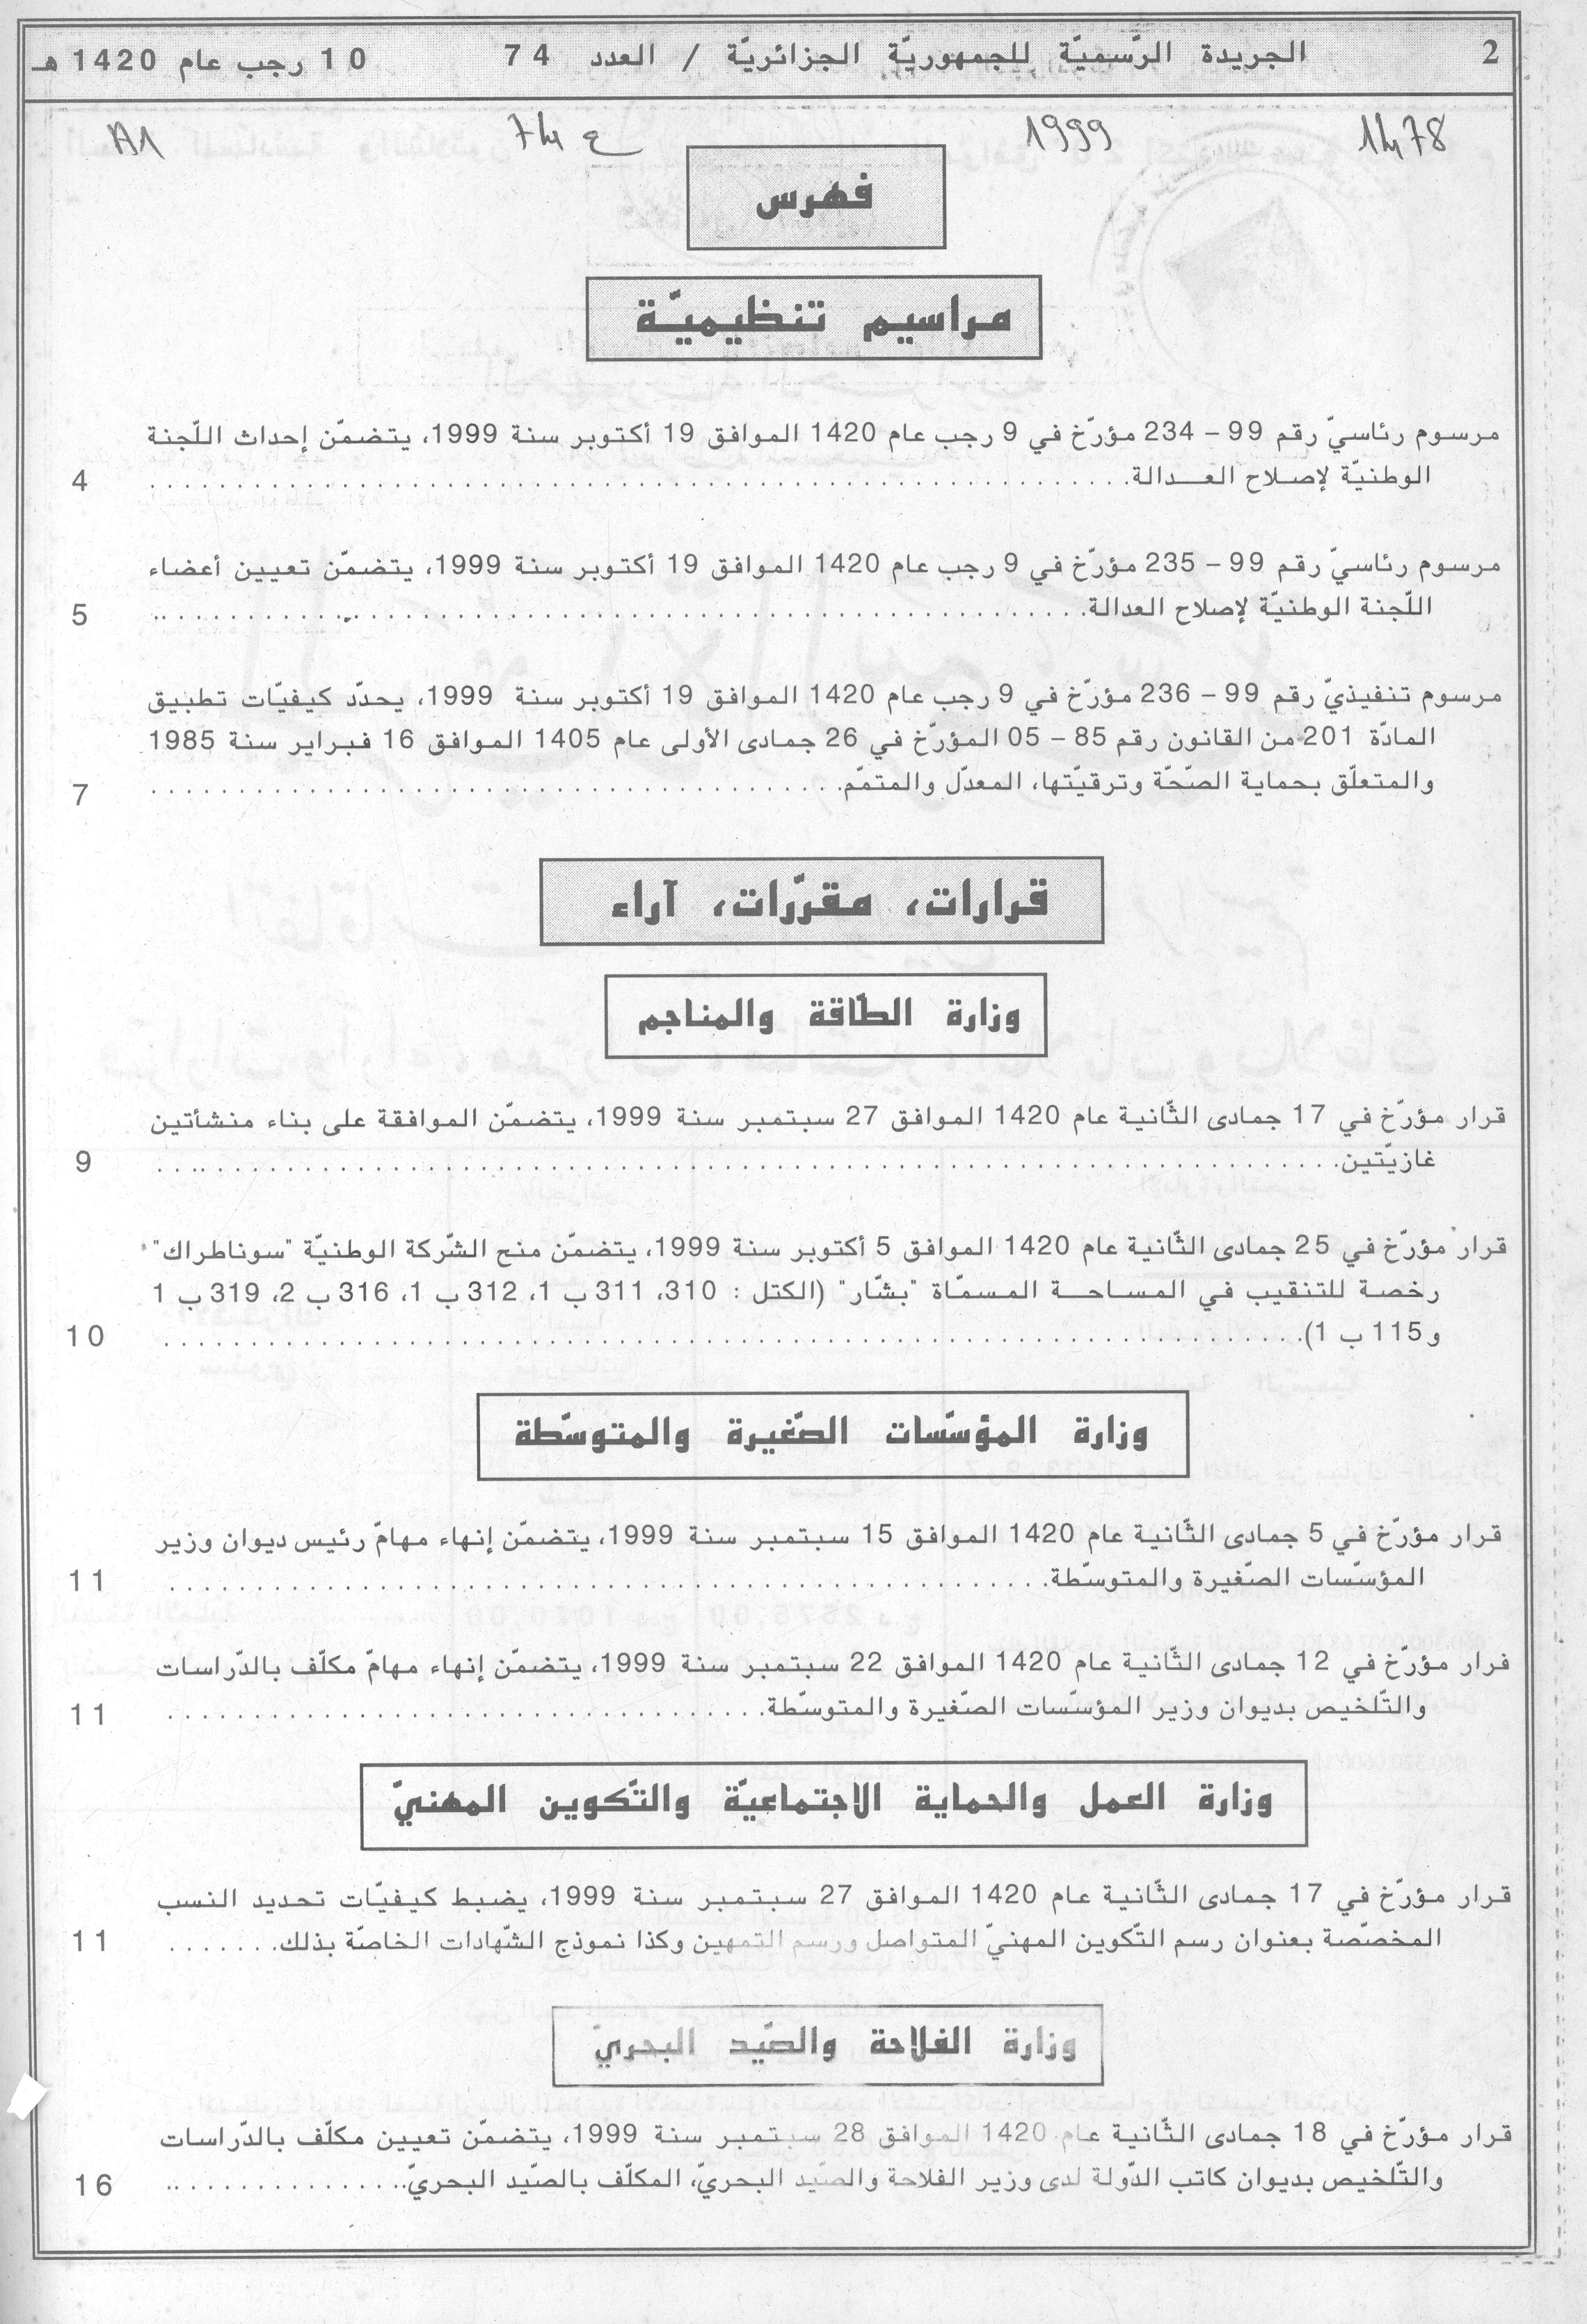 2
الجريدة الرّسميّة للجمهوريّة الجزائريّة / العدد 74
10 رجب عام 1420 هـ
1478
1999
ع 74
A1
فهرس
مراسيم تنظيميّة
مرسوم رئاسيّ رقم 99 - 234 مؤرّخ في 9 رجب عام 1420 الموافق 19 أكتوبر سنة 1999، يتضمّن إحداث اللّجنة
الوطنيّة لإصلاح العـدالة. . . . . . . . . . . . . . . . . . . . 4
مرسوم رئاسيّ رقم 99 - 235 مؤرّخ في 9 رجب عام 1420 الموافق 19 أكتوبر سنة 1999، يتضمّن تعيين أعضاء
اللّجنة الوطنيّة لإصلاح العدالة. . . . . . . . . . . . . . . . . . . . 5
مرسوم تنفيذيّ رقم 99 - 236 مؤرّخ في 9 رجب عام 1420 الموافق 19 أكتوبر سنة 1999، يحدّد كيفيّات تطبيق
المادّة 201 من القانون رقم 85 - 05 المؤرّخ في 26 جمادى الأولى عام 1405 الموافق 16 فبراير سنة 1985
والمتعلّق بحماية الصّحّة وترقيّتها، المعدّل والمتمّم. . . . . . . . . . . . . . . . . . . . 7
قرارات، مقرّرات، آراء
وزارة الطّاقة والمناجم
قرار مؤرّخ في 17 جمادى الثّانية عام 1420 الموافق 27 سبتمبر سنة 1999، يتضمّن الموافقة على بناء منشأتين
غازيّتين. . . . . . . . . . . . . . . . . . . . 9
قرار مؤرّخ في 25 جمادى الثّانية عام 1420 الموافق 5 أكتوبر سنة 1999، يتضمّن منح الشّركة الوطنيّة "سوناطراك"
رخصة للتنقيب في المساحة المسمّاة "بشّار" (الكتل : 310، 311 ب 1، 312 ب 1، 316 ب 2، 319 ب 1
و 115 ب 1). . . . . . . . . . . . . . . . . . . . 10
وزارة المؤسّسات الصّغيرة والمتوسّطة
قرار مؤرّخ في 5 جمادى الثّانية عام 1420 الموافق 15 سبتمبر سنة 1999، يتضمّن إنهاء مهامّ رئيس ديوان وزير
المؤسّسات الصّغيرة والمتوسّطة. . . . . . . . . . . . . . . . . . . . 11
فرار مؤرّخ في 12 جمادى الثّانية عام 1420 الموافق 22 سبتمبر سنة 1999، يتضمّن إنهاء مهامّ مكلّف بالدّراسات
والتّلخيص بديوان وزير المؤسّسات الصّغيرة والمتوسّطة. . . . . . . . . . . . . . . . . . . . 11
وزارة العمل والحماية الاجتماعيّة والتّكوين المهنيّ
قرار مؤرّخ في 17 جمادى الثّانية عام 1420 الموافق 27 سبتمبر سنة 1999، يضبط كيفيّات تحديد النسب
المخصّصة بعنوان رسم التّكوين المهنيّ المتواصل ورسم التمهين وكذا نموذج الشّهادات الخاصّة بذلك. . . . . . . 11
وزارة الفلاحة والصّيد البحريّ
قرار مؤرّخ في 18 جمادى الثّانية عام 1420 الموافق 28 سبتمبر سنة 1999، يتضمّن تعيين مكلّف بالدّراسات
والتّلخيص بديوان كاتب الدّولة لدى وزير الفلاحة والصّيد البحريّ، المكلّف بالصّيد البحريّ. . . . . . . . . . . . . . 16